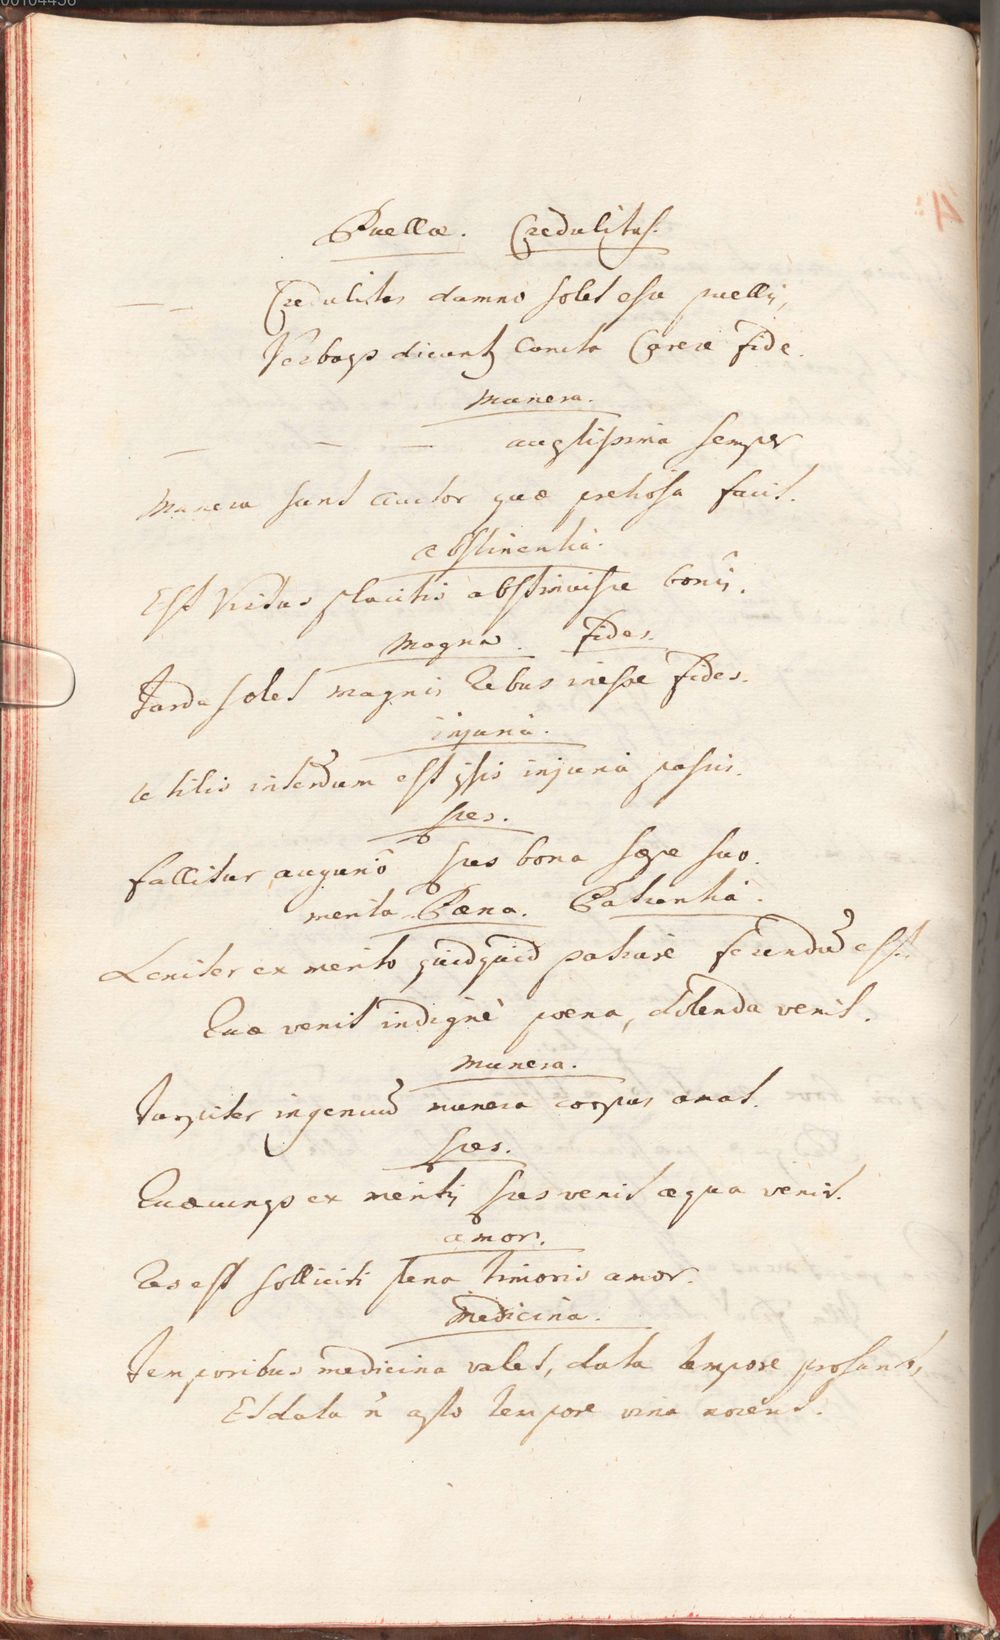 Puellæ. Credulitas.
Credulitas damno solet esse puellis,
Verbaqꝫ dicunt Cuncta Carere fide.
Munera.
acceptissima semper
Munera sunt auctor quæ pretiosa facit.
abstinentia.
Est Virtus placitis abstinuisse bonis.
Magna. Fides.
Tarda solet magnis Rebus inesse Fides.
injuria.
Utilis interdum est ipsis injuria passis.
Spes.
Fallitur augurio spes bona sæpe suo.
merita Pæna. Patientia.
Leniter ex merito quidquid patiare ferendũ est.
Quæ venit indignè pœna, dolenda venit.
Munera.
Turpiter ingenuũ munera corpus amat.
Spes.
Quæcunqꝫ ex meritis spes venit æqua venit.
amor.
Res est solliciti plena timoris amor.
Medicina.
Temporibus medicina valet, data tempore prosunt,
Et data ñ apto tempore vina nocent.